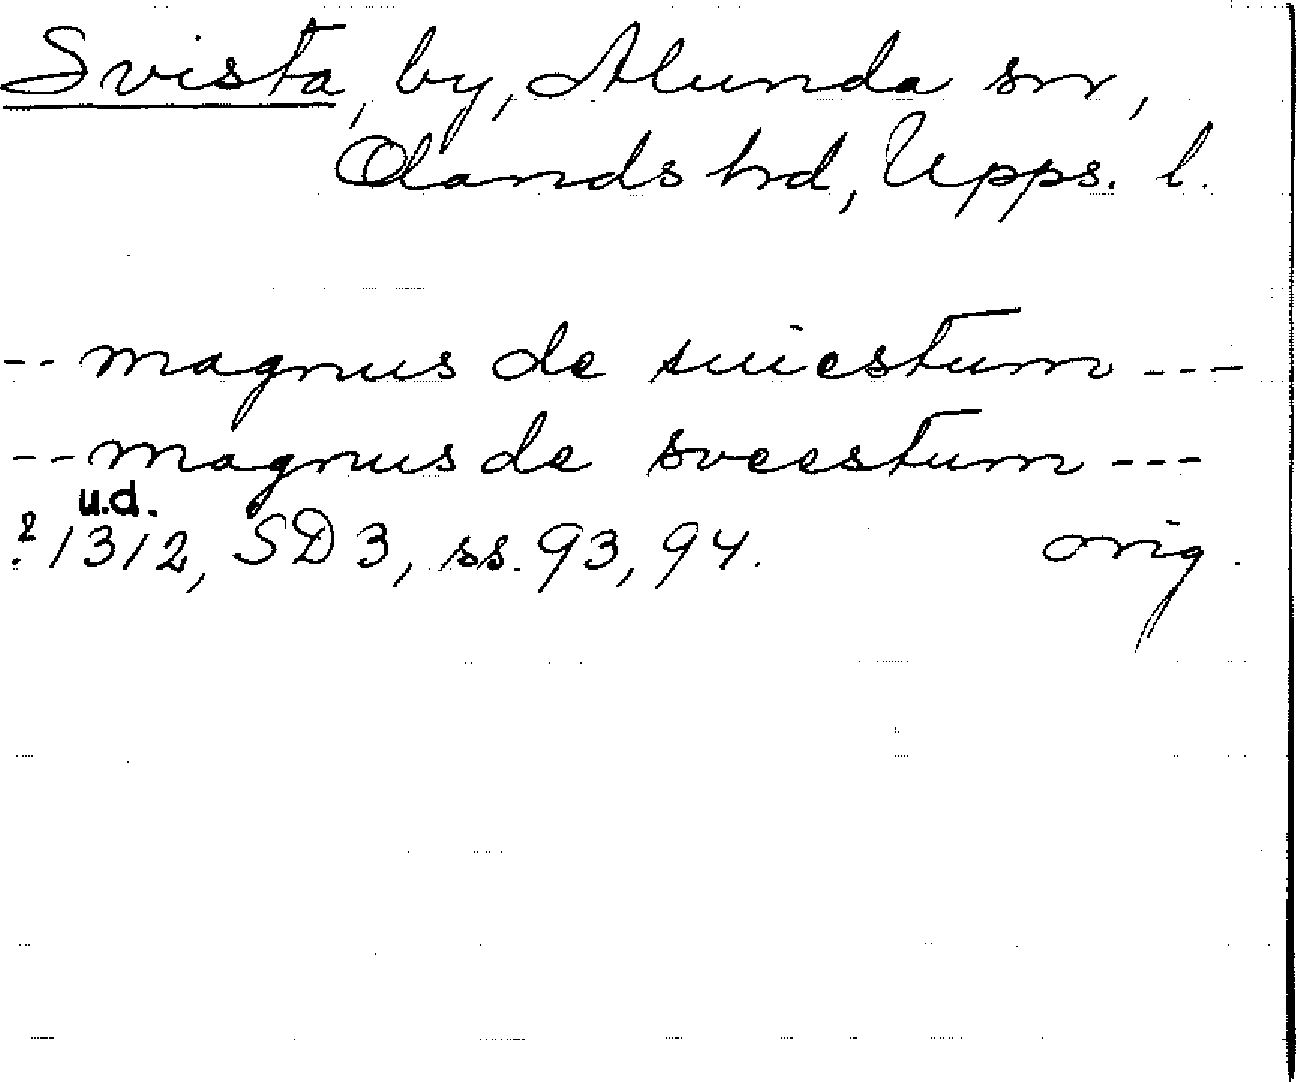 Svista, by, Alunda sn,
Olands hd, Upps. l.
-- magnus de suiestum ---
-- magnus de sveestum ---
u.d.
? 1312, SD 3, ss. 93, 94. orig.